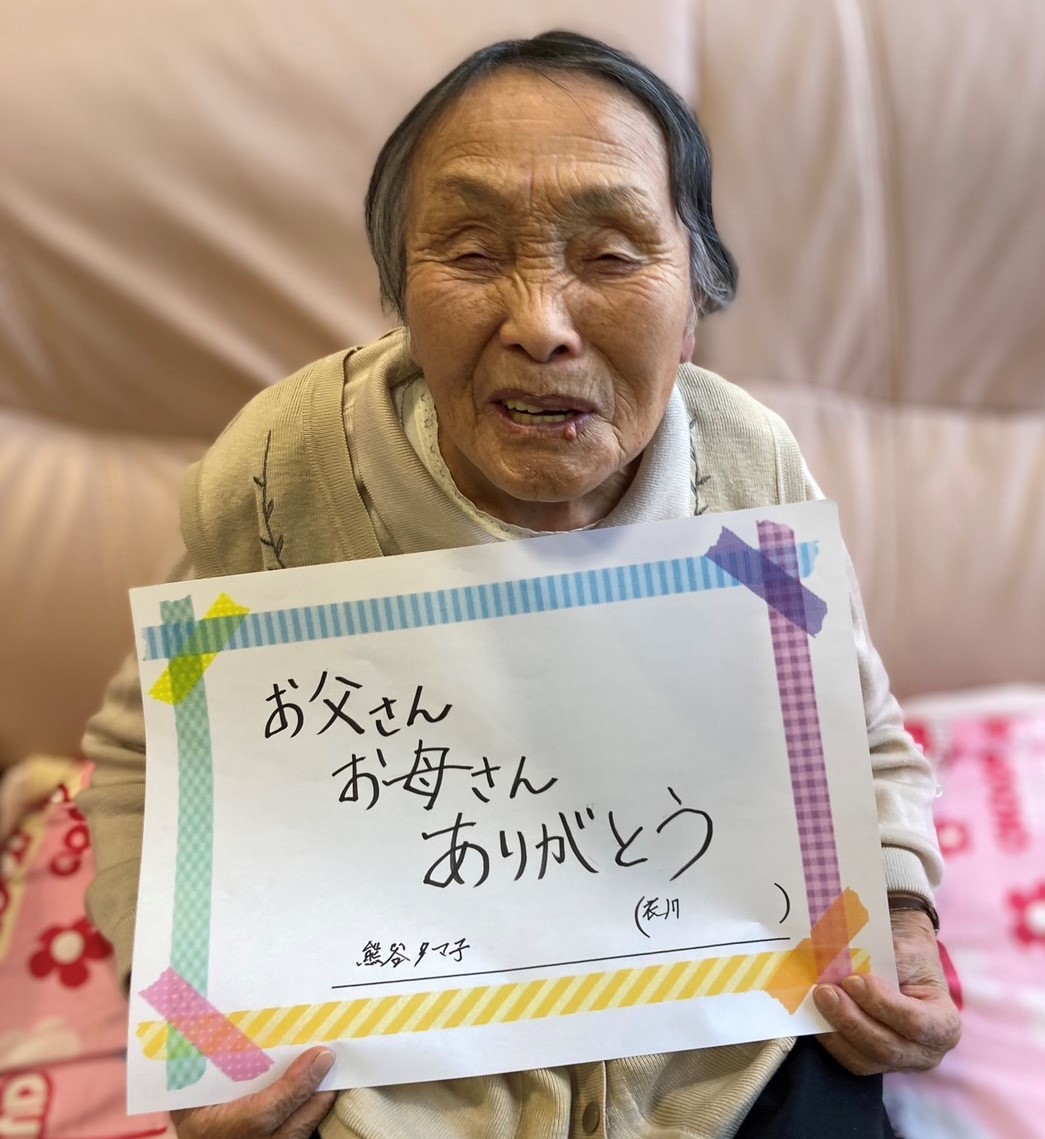 お父さん
お母さん
ありがとう
(衣川 )
熊谷タマ子